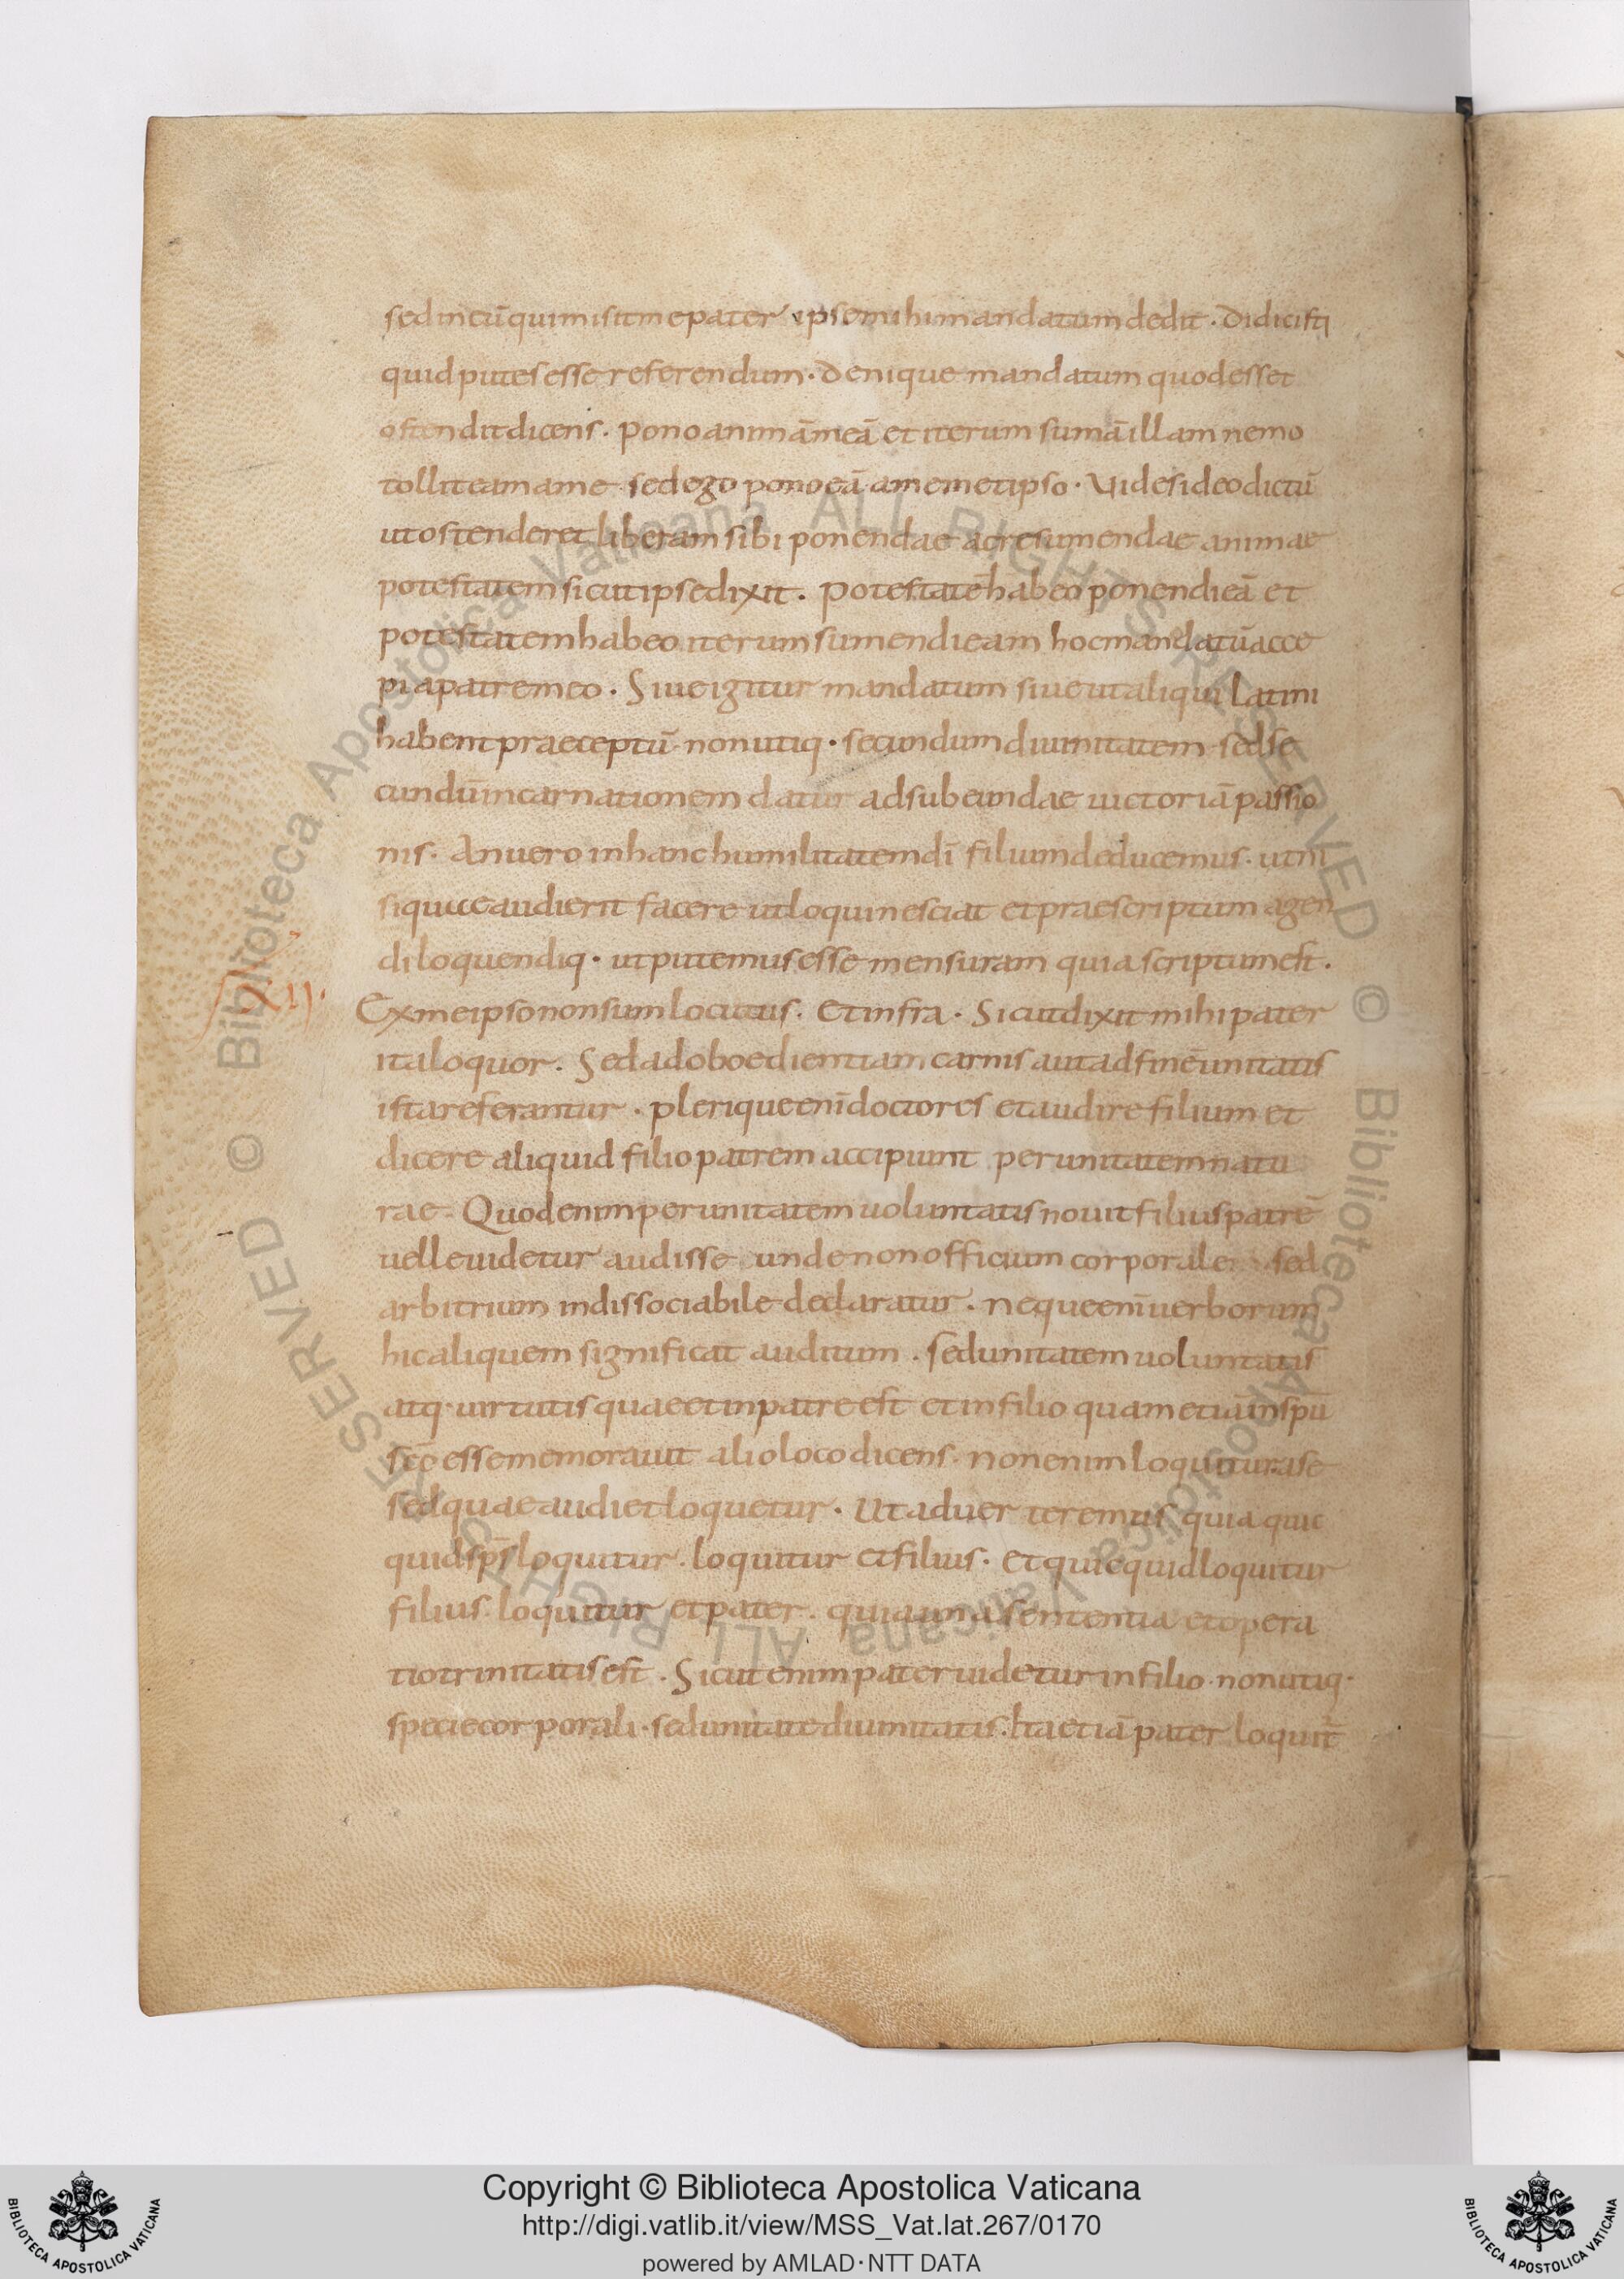 sed in eū qui misit me pater ipse mihi mandatum dedit · Didicisti
quid putes esse referendum · Denique mandatum quod esset
ostendit dicens · Pono animā meā et iterum sumā illam nemo
tollit eam a me sed ego pono eā a memetipso · Vides ideo dictū
ut ostenderet liberam sibi ponendae ac resumendae animae
potestatem sicut ipse dixit · Potestatē habeo ponendi eā et
potestatem habeo iterum sumendi eam hoc mandatū acce
pi a patre meo · Siue igitur mandatum siue ut aliqui latini
habent praeceptū non utiq · secundum diuinitatem sed se
cundū incarnationem datur ad subeundae uictoriā passio
nis · An uero in hanc humilitatem dī filium deducemus · ut ni
si quicce audierit facere ut loqui nesciat et praescriptum agen
di loquendiq · ut putemus esse mensuram quia scriptum est ·
XII ·
Ex me ipso non sum locutus · Et infra · Sicut dixit mihi pater
ita loquor · Sed ad oboedientiam carnis aut ad finē unitatis
ista referantur · plerique enī doctores et audire filium et
dicere aliquid filio patrem accipiunt per unitatem natu
rae · Quod enim per unitatem uoluntatis nouit filius patrē
uelle uidetur audisse unde non officium corporale sed
arbitrium indissociabile declaratur · neque enī uerborum
hic aliquem significat auditum · sed unitatem uoluntatis
atq · uirtutis quae et in patre est et in filio quam etiā in spū
scō esse memorauit alio loco dicens · non enim loquitur a se
sed quae audiet loquetur · Ut aduerteremus quia quic
quid sps̄ loquitur · loquitur et filius · et quicquid loquitur
filius · loquitur et pater · quia una sententia et opera
tio trinitatis est · Sicut enim pater uidetur in filio · non utiq ·
specie corporali · sed unitate diuinitatis · Ita etiā pater loquit̄
Copyright © Biblioteca Apostolica Vaticana
http://digi.vatlib.it/view/MSS_Vat.lat.267/0170
powered by AMLAD · NTT DATA
BIBLIOTECA APOSTOLICA VATICANA
BIBLIOTECA APOSTOLICA VATICANA
© Biblioteca Apostolica Vaticana ALL RIGHTS RESERVED
© Biblioteca Apostolica Vaticana ALL RIGHTS RESERVED